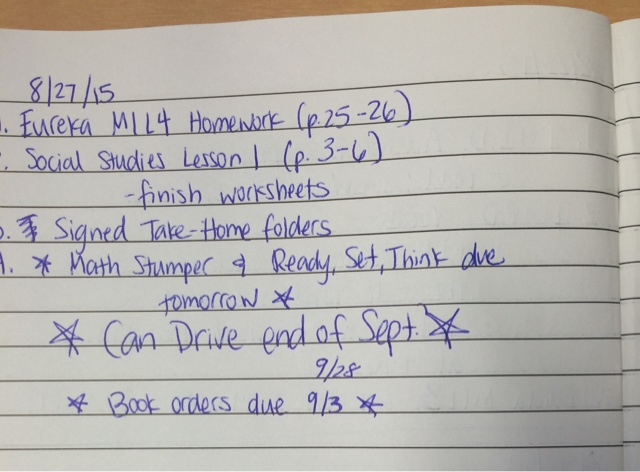 8/27/15
. Eureka M1L4 Homework (p.25-26)
. Social Studies Lesson 1 (p. 3-6)
-finish worksheets
. Signed Take-Home folders
. * Math Stumper & Ready, Set, Think due
tomorrow *
* Can Drive end of Sept. *
9/28
* Book orders due 9/3 *